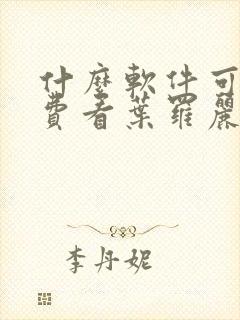 什麼軟件可
費看葉羅麗
李丹妮